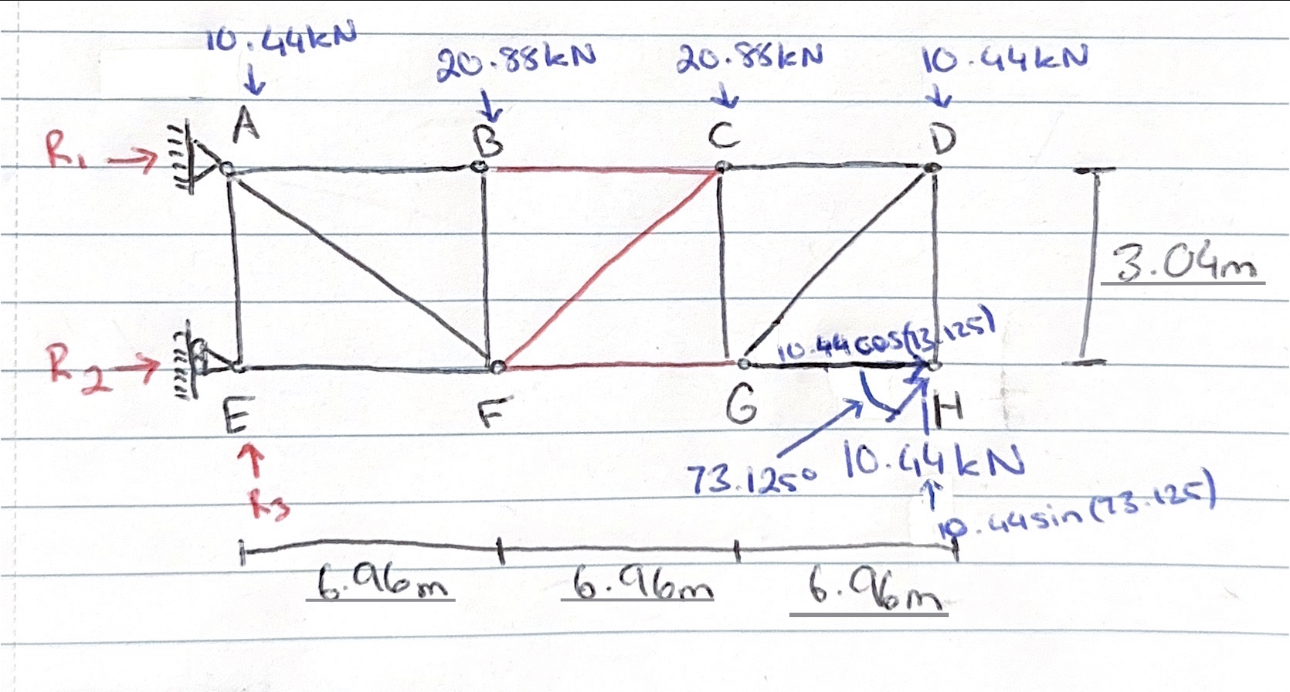 10.44kN
20.88kN
20.88kN
10.44kN
A
B
C
D
R₁ →
3.04m
10.44cos(73.125)
R₂ →
E
F
G
H
73.125°
10.44kN
R₃
10.44sin(73.125)
6.96m
6.96m
6.96m